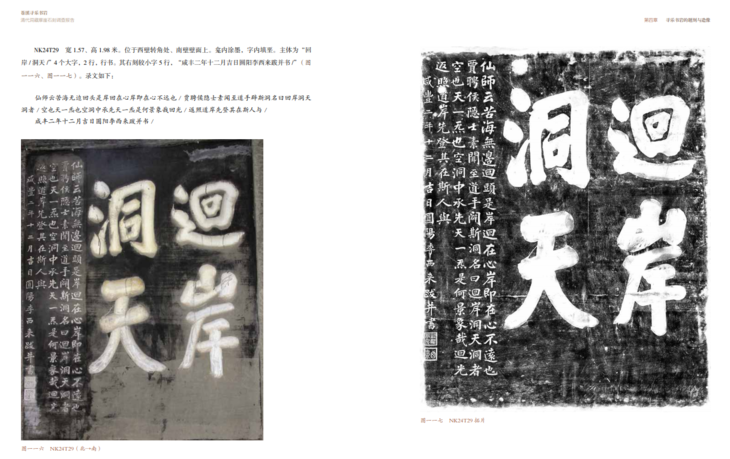 NK24T29 宽 1.57、高 1.98 米。位于西壁转角处，南壁壁面上。龛内涂墨，字内填垩。主体为“回
岸 / 洞天”4 个大字，2 行，行书。其右刻较小字 5 行，“咸丰二年十二月吉日圆阳李西来跋并书”（图
一一六、图一一七）。录文如下：
仙师云苦海无边回头是岸回在心岸即在心不远也 / 贾聘侯隐士素闻至道手辟斯洞名曰回岸洞天
洞者 / 空也天一炁也空洞中承先天一炁是何景象哉回光 / 返照道岸先登其在斯人与 /
咸丰二年十二月吉日圆阳李西来跋并书 /
迴岸
洞天
仙師云苦海無邊迴頭是岸迴在心岸即在心不遠也
賈聘侯隱士素聞至道手闢斯洞名曰迴岸洞天洞者
空也天一炁也空洞中承先天一炁是何景象哉迴光
返照道岸先登其在斯人與
咸豐二年十二月吉日圓陽李西来跋并書
图一一六 NK24T29（北→南）
寻乐书岩的题刻与造像
迴岸
洞天
仙師云苦海無邊迴頭是岸迴在心岸即在心不遠也
賈聘侯隱士素聞至道手闢斯洞名曰迴岸洞天洞者
空也天一炁也空洞中承先天一炁是何景象哉迴光
返照道岸先登其在斯人與
咸豐二年十二月吉日圓陽李西来跋并書
图一一七 NK24T29 拓片